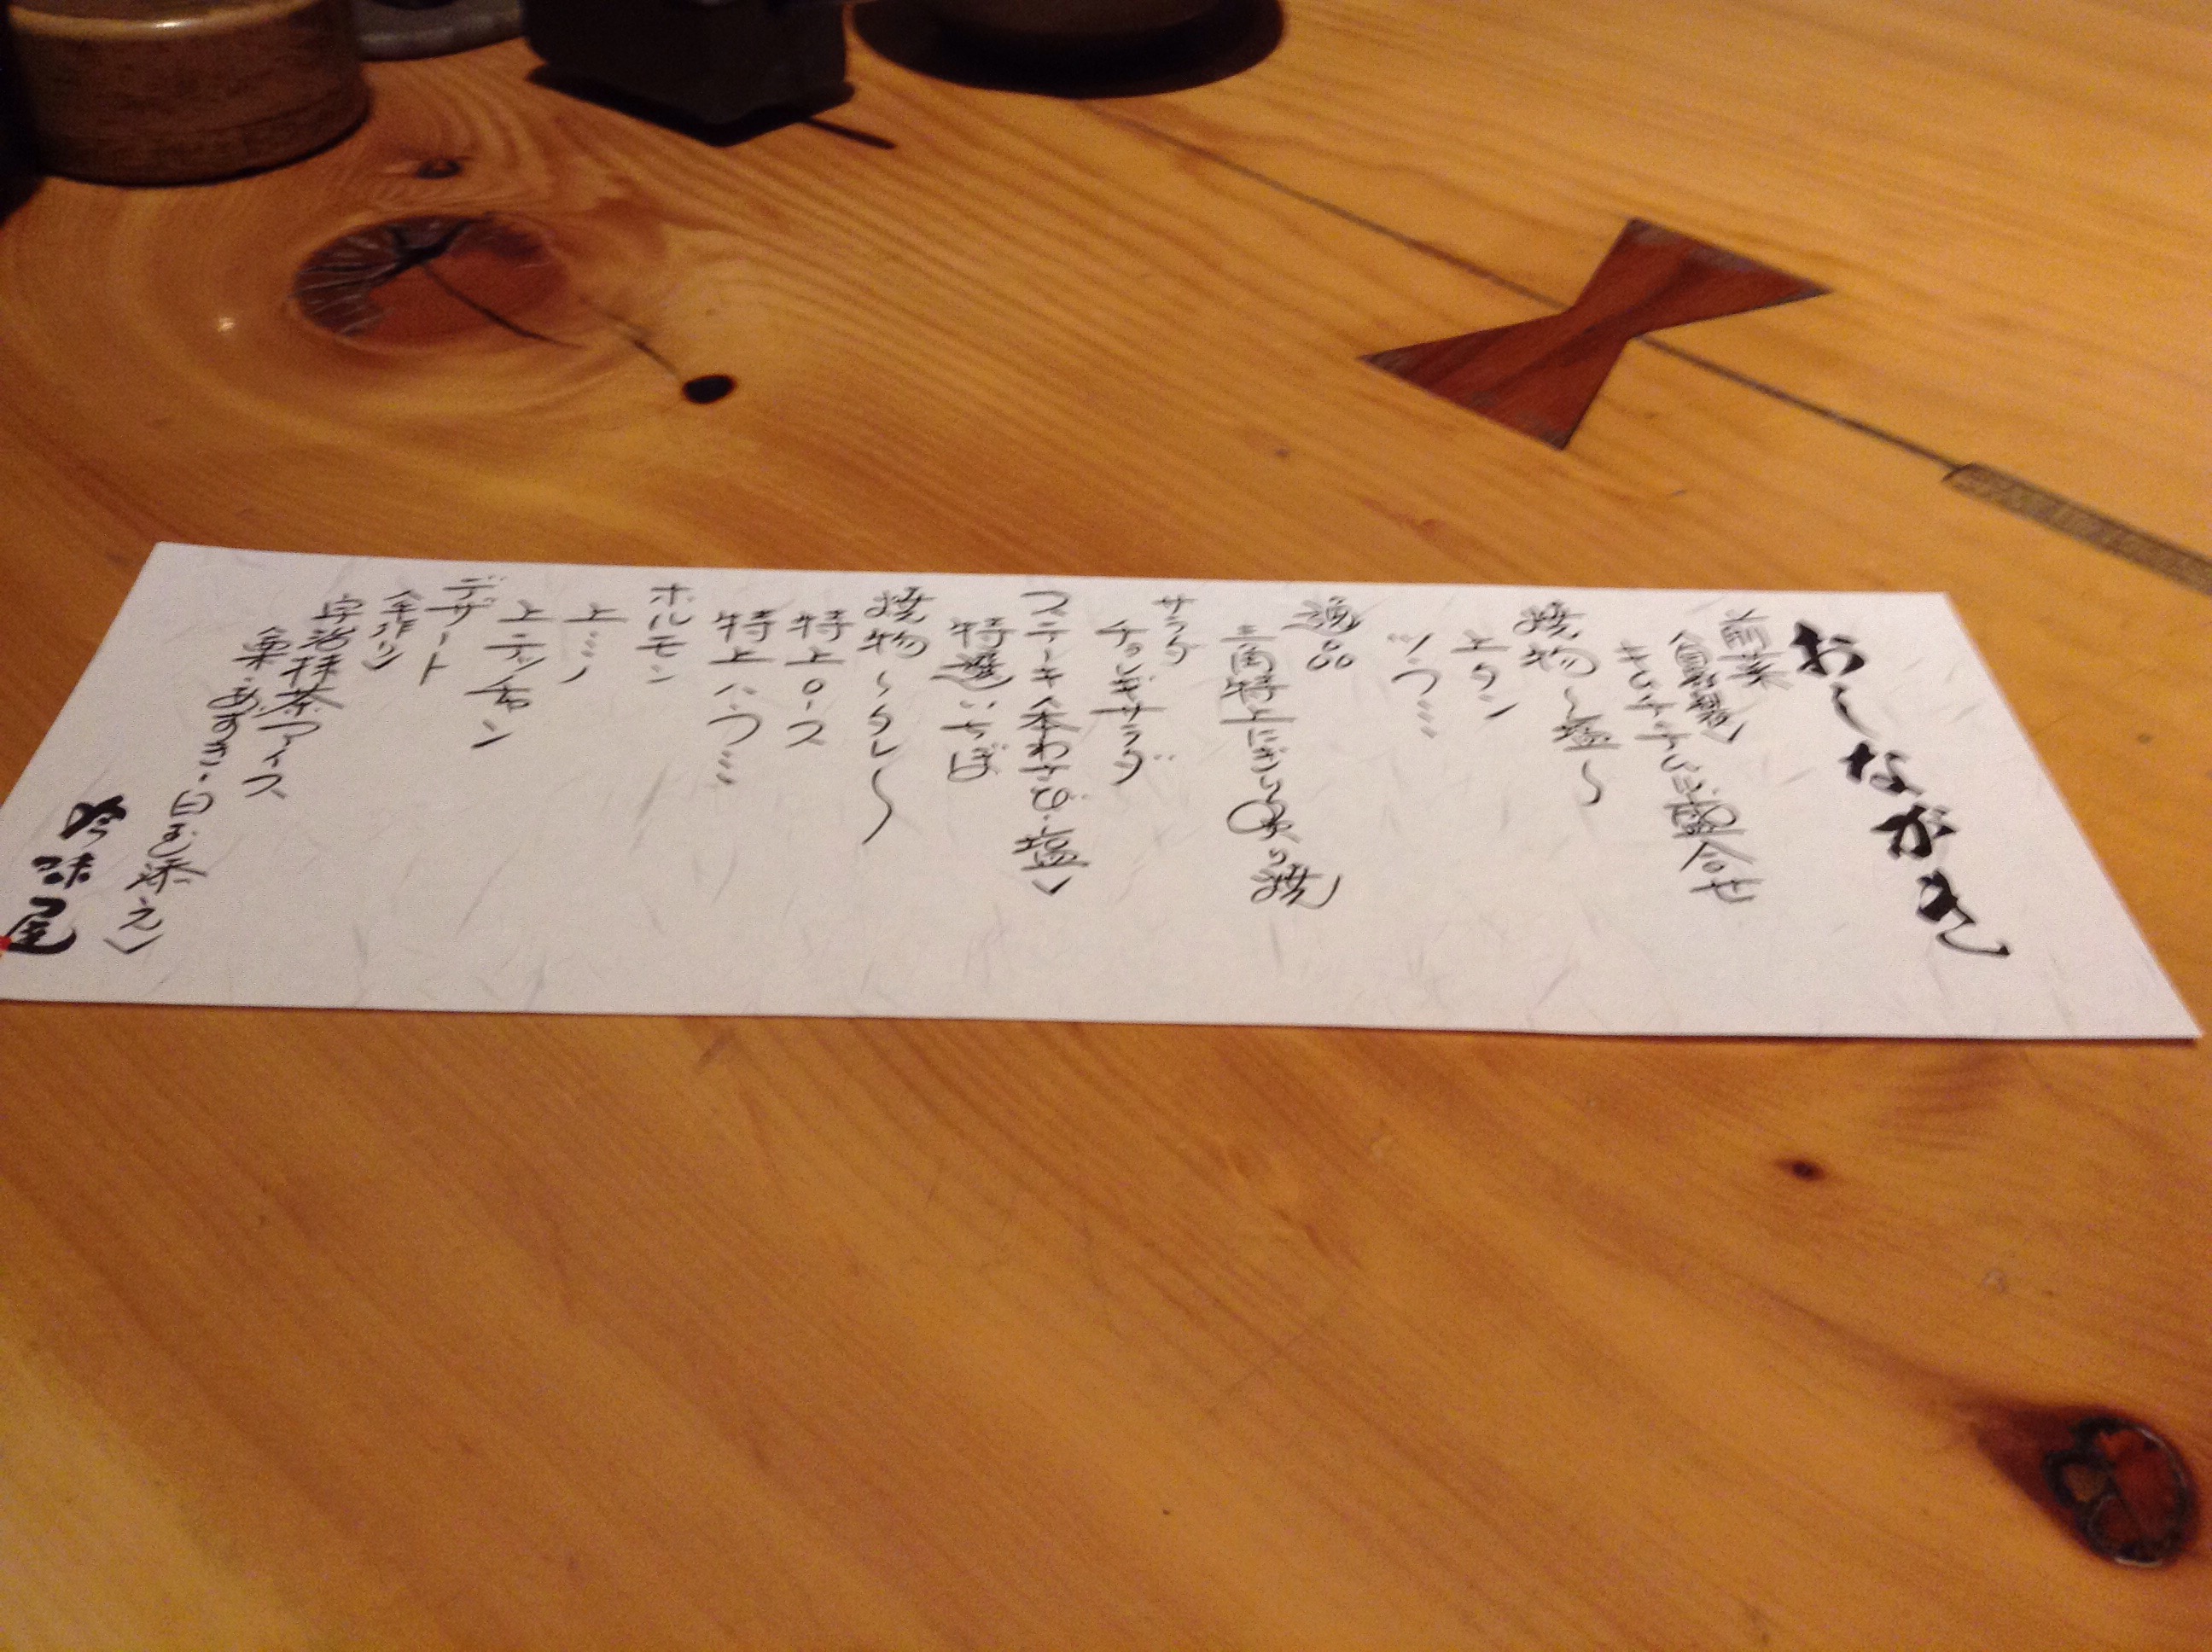 お～ながき
前菜
キムチ・ナムル三種盛合せ
焼物～塩～
上タン
ツラミ
逸品
サラダ
チョレギサラダ
ステーキ〈本わさび・塩〉
特選いちぼ
焼物～タレ～
特上ロース
特上ハラミ
ホルモン
上ミノ
上テッチャン
デザート
宇治抹茶アイス
栗・あずき・白玉添え〉
味屋